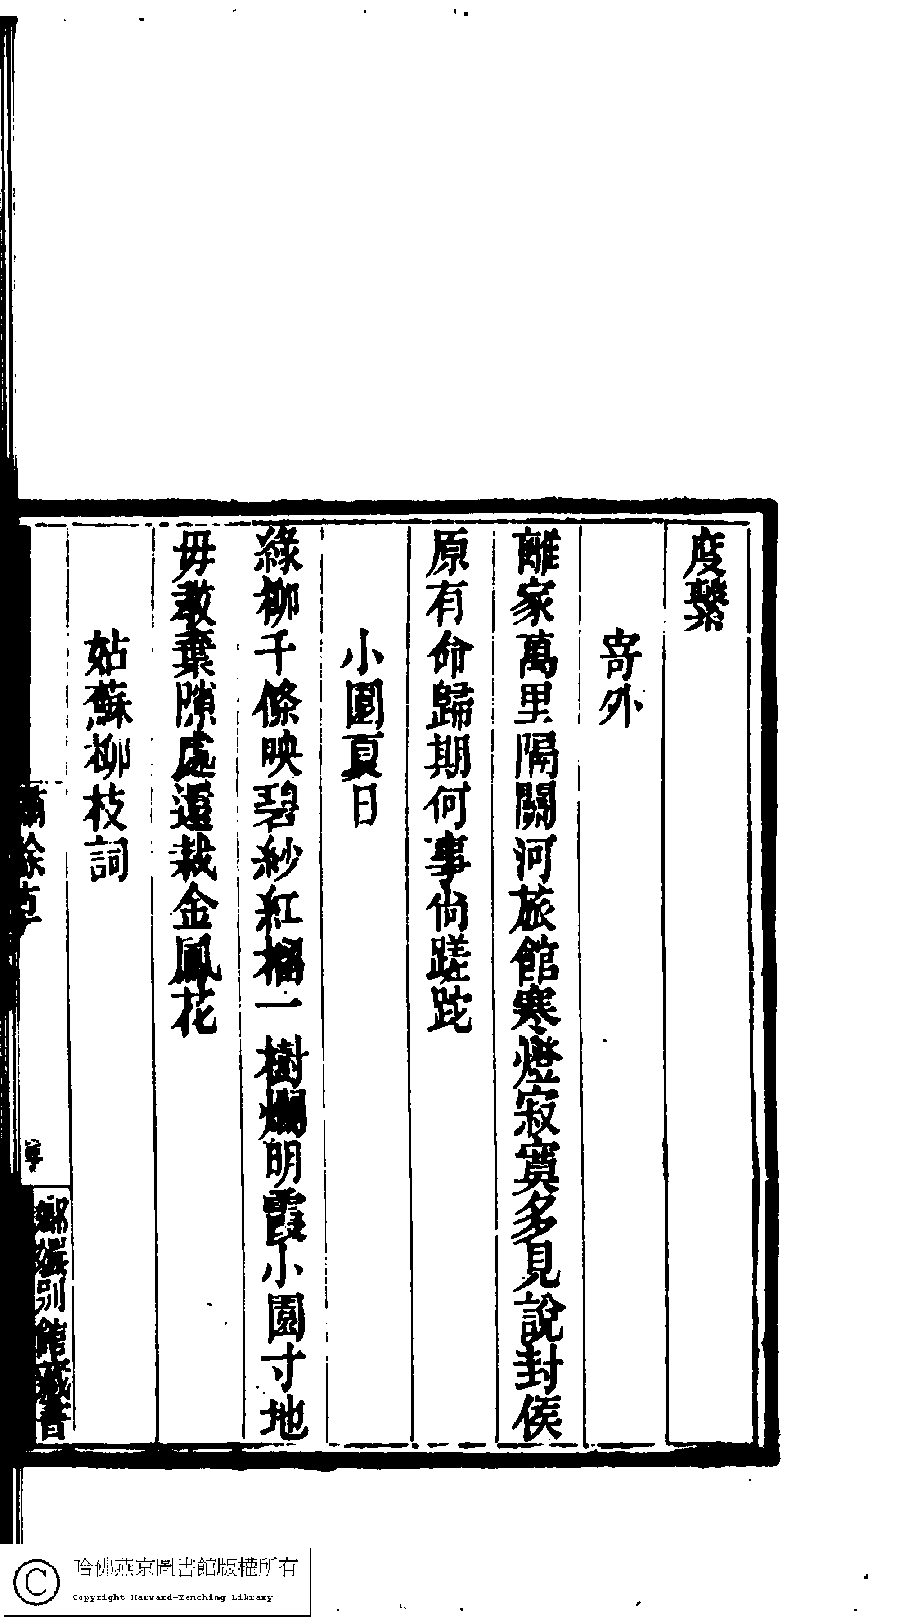 度縏
寄外
離家萬里隔關河旅館寒燈寂寞多見說封侯
原有命歸期何事尚蹉跎
小園夏日
綠柳千條映碧紗紅榴一樹爛明霞小園寸地
毋教棄隙處還栽金鳳花
姑蘇柳枝詞
餘草
嫏嬛別館藏書
哈佛燕京圖書館版權所有
Copyright Harvard-Yenching Library